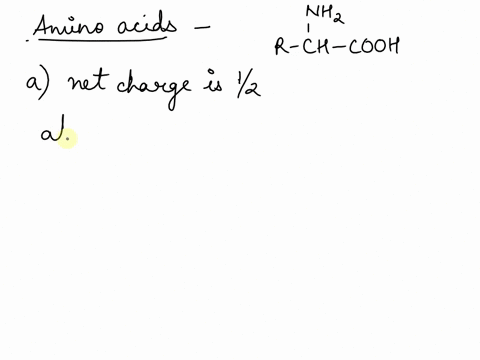 Amino acids –
NH2
R–CH–COOH
a) net charge is 1/2
at